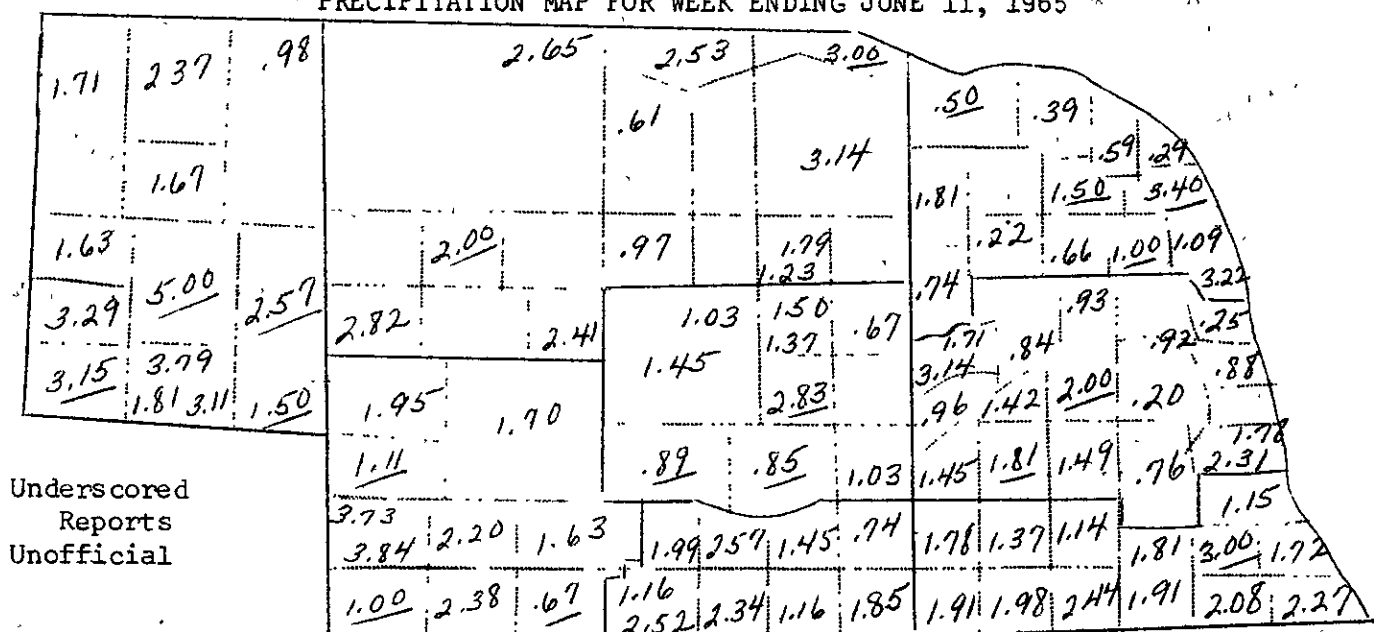 PRECIPITATION MAP FOR WEEK ENDING JUNE 11, 1965
1.71 2.37 .98 2.65 2.53 3.00
.50 .39
.61
3.14 .59 .29
1.67 1.81 1.50 3.40
1.63 2.00 .97 1.79 .22 .66 1.00 1.09
1.23
5.00 2.57 .74 3.22
3.29 2.82 2.41 1.03 1.50 .67 .93 .25
1.37 1.71 .84 .92
3.15 3.79 1.45 3.14 .88
1.81 3.11 1.50 1.95 1.70 2.83 .96 1.42 2.00 .20
1.78
1.11 .89 .85 1.03 1.45 1.81 1.49 .76 2.31
Underscored
Reports
Unofficial
3.73 1.15
3.84 2.20 1.63 1.99 2.57 1.45 .74 1.78 1.37 1.14 1.81 3.00 1.72
1.00 2.38 .67 1.16
2.52 2.34 1.16 1.85 1.91 1.98 2.44 1.91 2.08 2.27